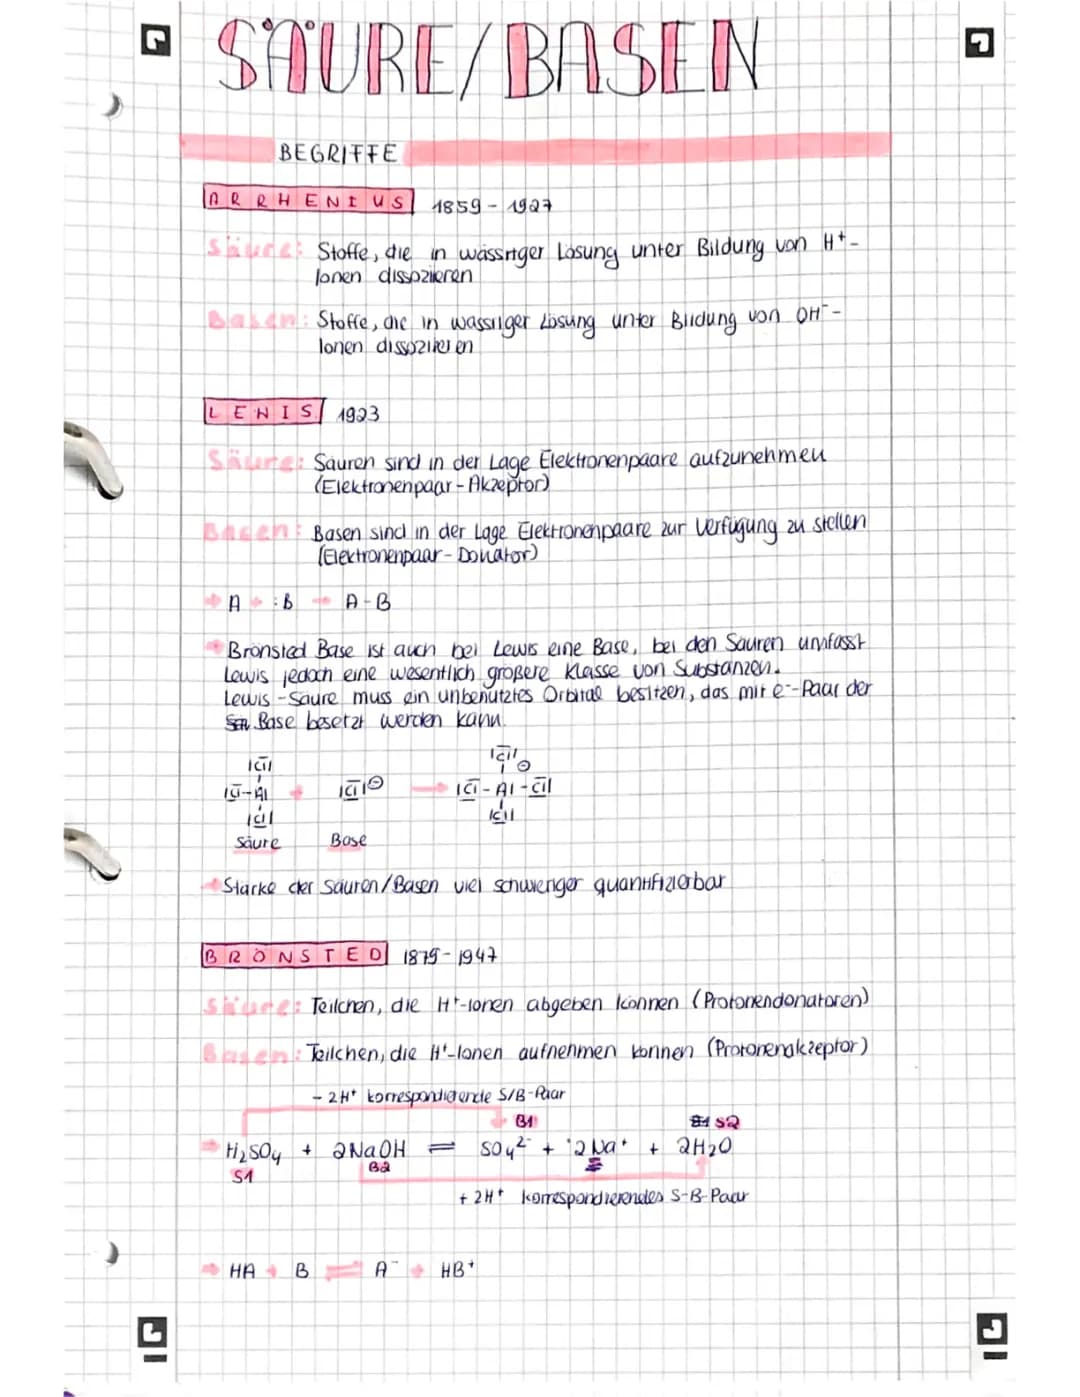 SÄURE/BASEN
BEGRIFFE
ARRHENIUS 1859-1927
Säure: Stoffe, die in wässriger Lösung unter Bildung von H⁺-
Ionen dissoziieren
Basen: Stoffe, die in wässriger Lösung unter Bildung von OH⁻-
Ionen dissoziieren
LEWIS 1923
Säure: Säuren sind in der Lage Elektronenpaare aufzunehmen
(Elektronenpaar-Akzeptor)
Basen: Basen sind in der Lage Elektronenpaare zur Verfügung zu stellen
(Elektronenpaar-Donator)
→ A + :B → A-B
→ Brönsted Base ist auch bei Lewis eine Base, bei den Säuren umfasst
Lewis jedoch eine wesentlich größere Klasse von Substanzen.
Lewis-Säure muss ein unbenutztes Orbital besitzen, das mit e⁻-Paar der
Base besetzt werden kann.
|C̅l| |C̅l| ⊖
|C̅l-Al + |C̅l|⊖ → |C̅l-Al-C̅l|
|Cl| |Cl|
Säure Base
→ Stärke der Säuren/Basen viel schwieriger quantifizierbar
BRÖNSTED 1879-1947
Säure: Teilchen, die H⁺-Ionen abgeben können (Protonendonatoren)
Basen: Teilchen, die H⁺-Ionen aufnehmen können (Protonenakzeptor)
- 2H⁺ korrespondierende S/B-Paar
B1 S2
→ H₂SO₄ + 2NaOH ⇌ SO₄²⁻ + 2Na⁺ + 2H₂O
S1 B2
+ 2H⁺ korrespondierendes S-B-Paar
→ HA + B ⇌ A⁻ + HB⁺